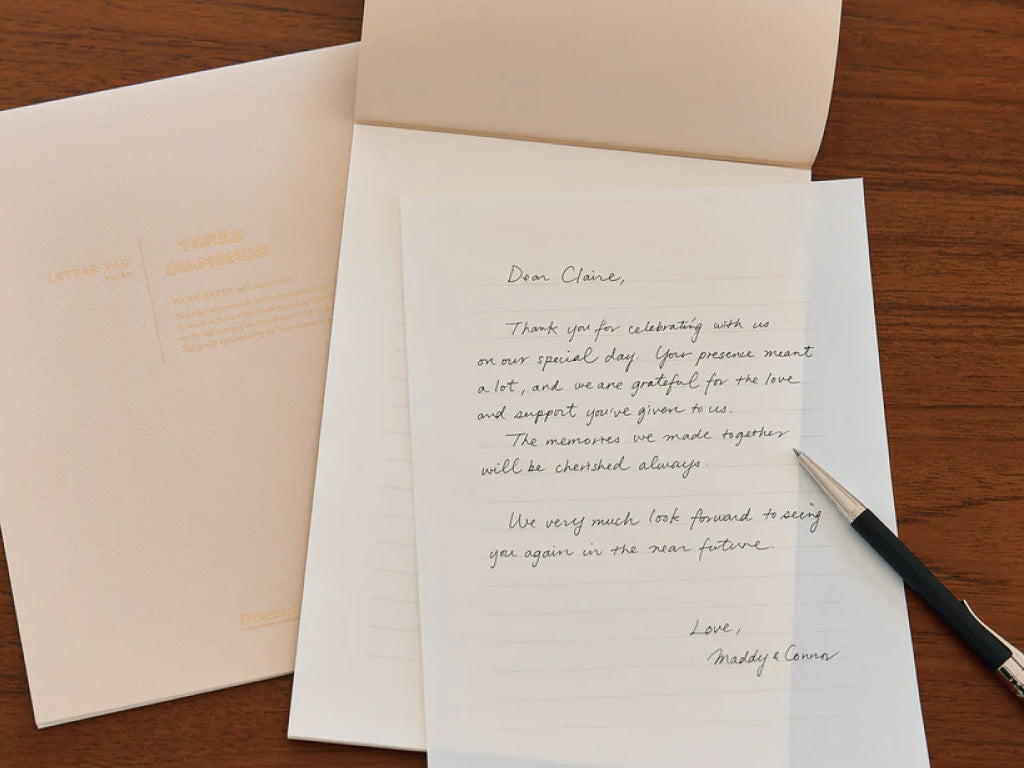 LETTER PAD
THREE
DIAMONDS
BANK PAPER with
Dear Claire,
Thank you for celebrating with us
on our special day. Your presence meant
a lot, and we are grateful for the love
and support you've given to us.
The memories we made together
will be cherished always.
We very much look forward to seeing
you again in the near future.
Love,
Maddy & Connor